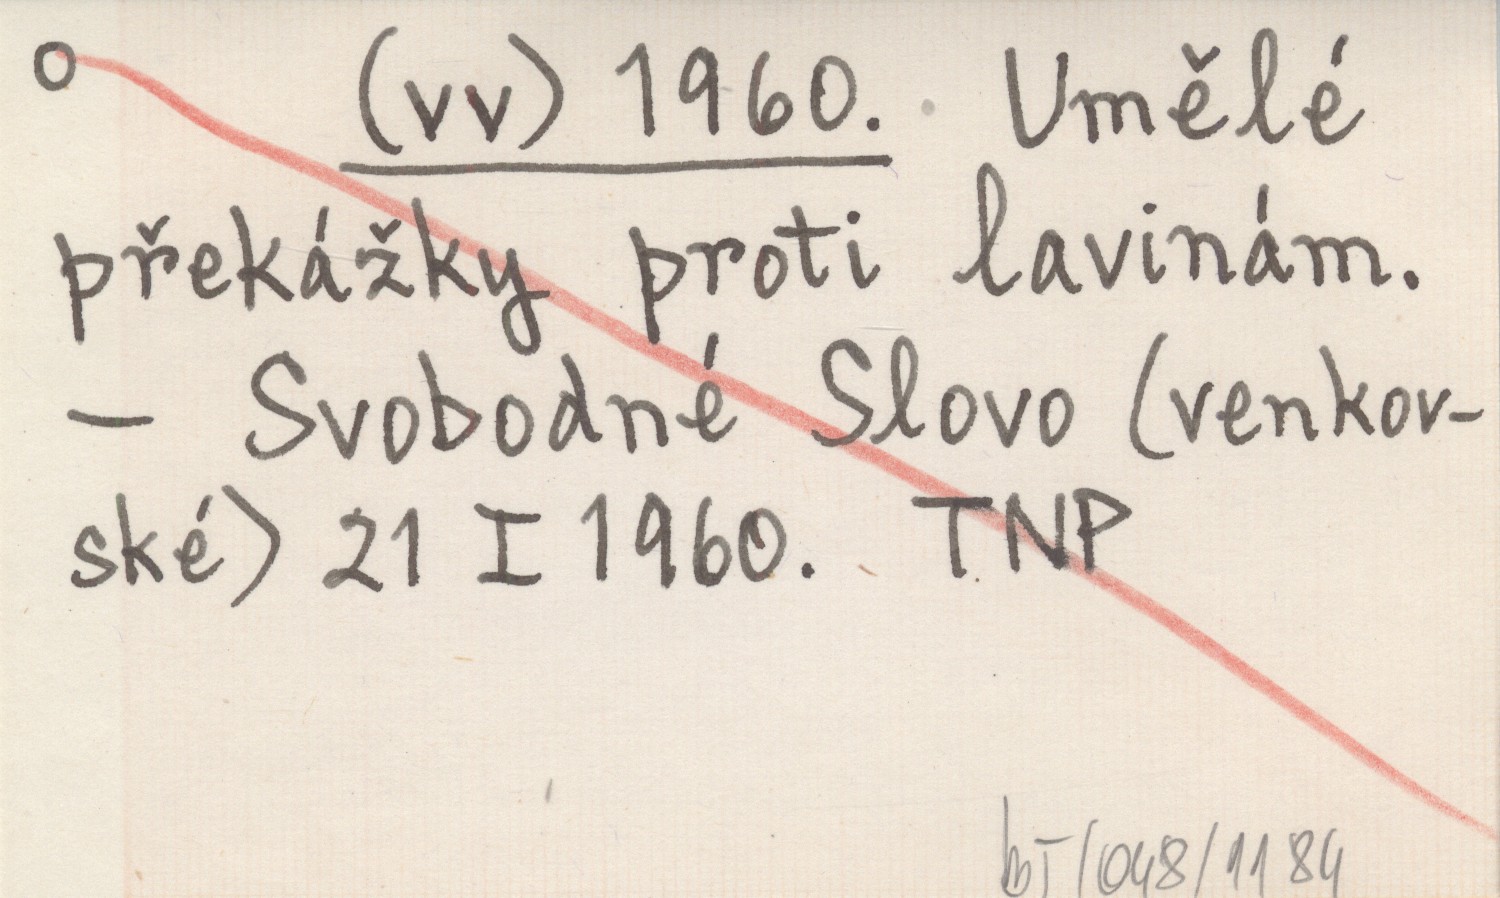 o (vv) 1960. Umělé
překážky proti lavinám.
— Svobodné Slovo (venkov-
ské) 21 I 1960. TNP
bT/048/1184